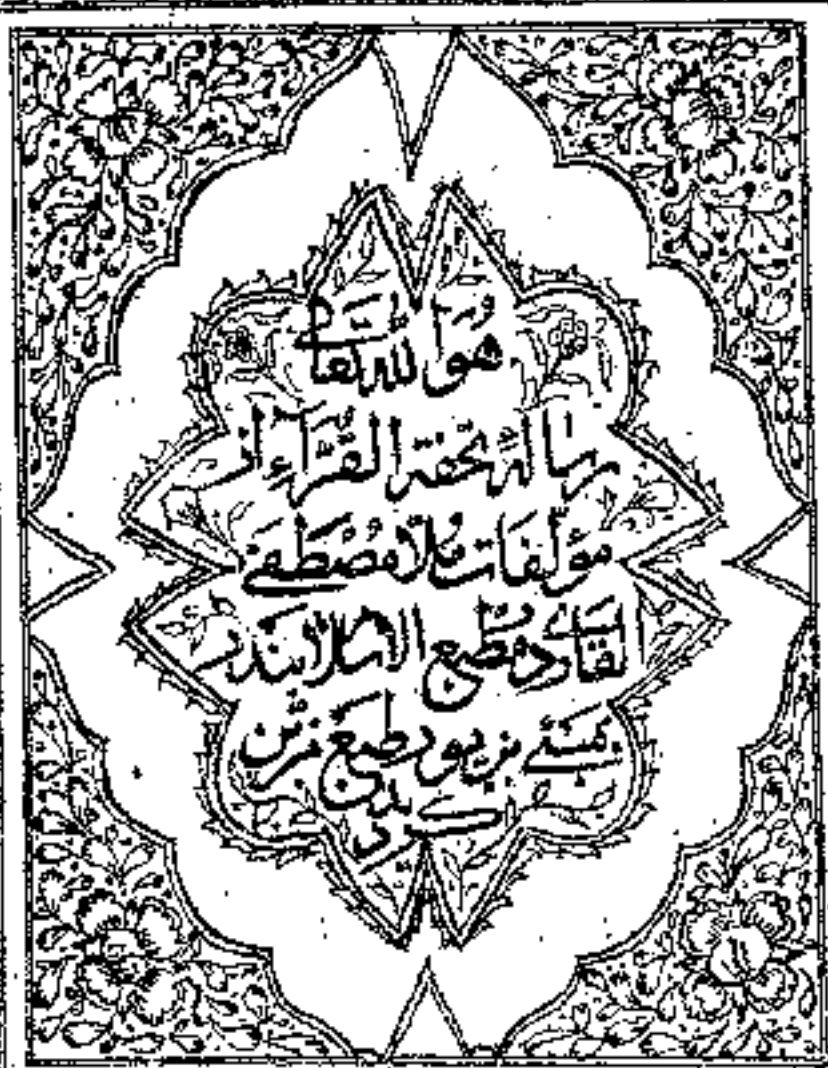 هُوَ اللّٰه تَعَالٰی
رسالهٔ تحفة القُرَّآءِ از
مؤلّفات مُلّا مُصْطَفٰی
القاری در مطبع الاسلام بندر
بمبئی بزیور طبع مزیّن
کردید